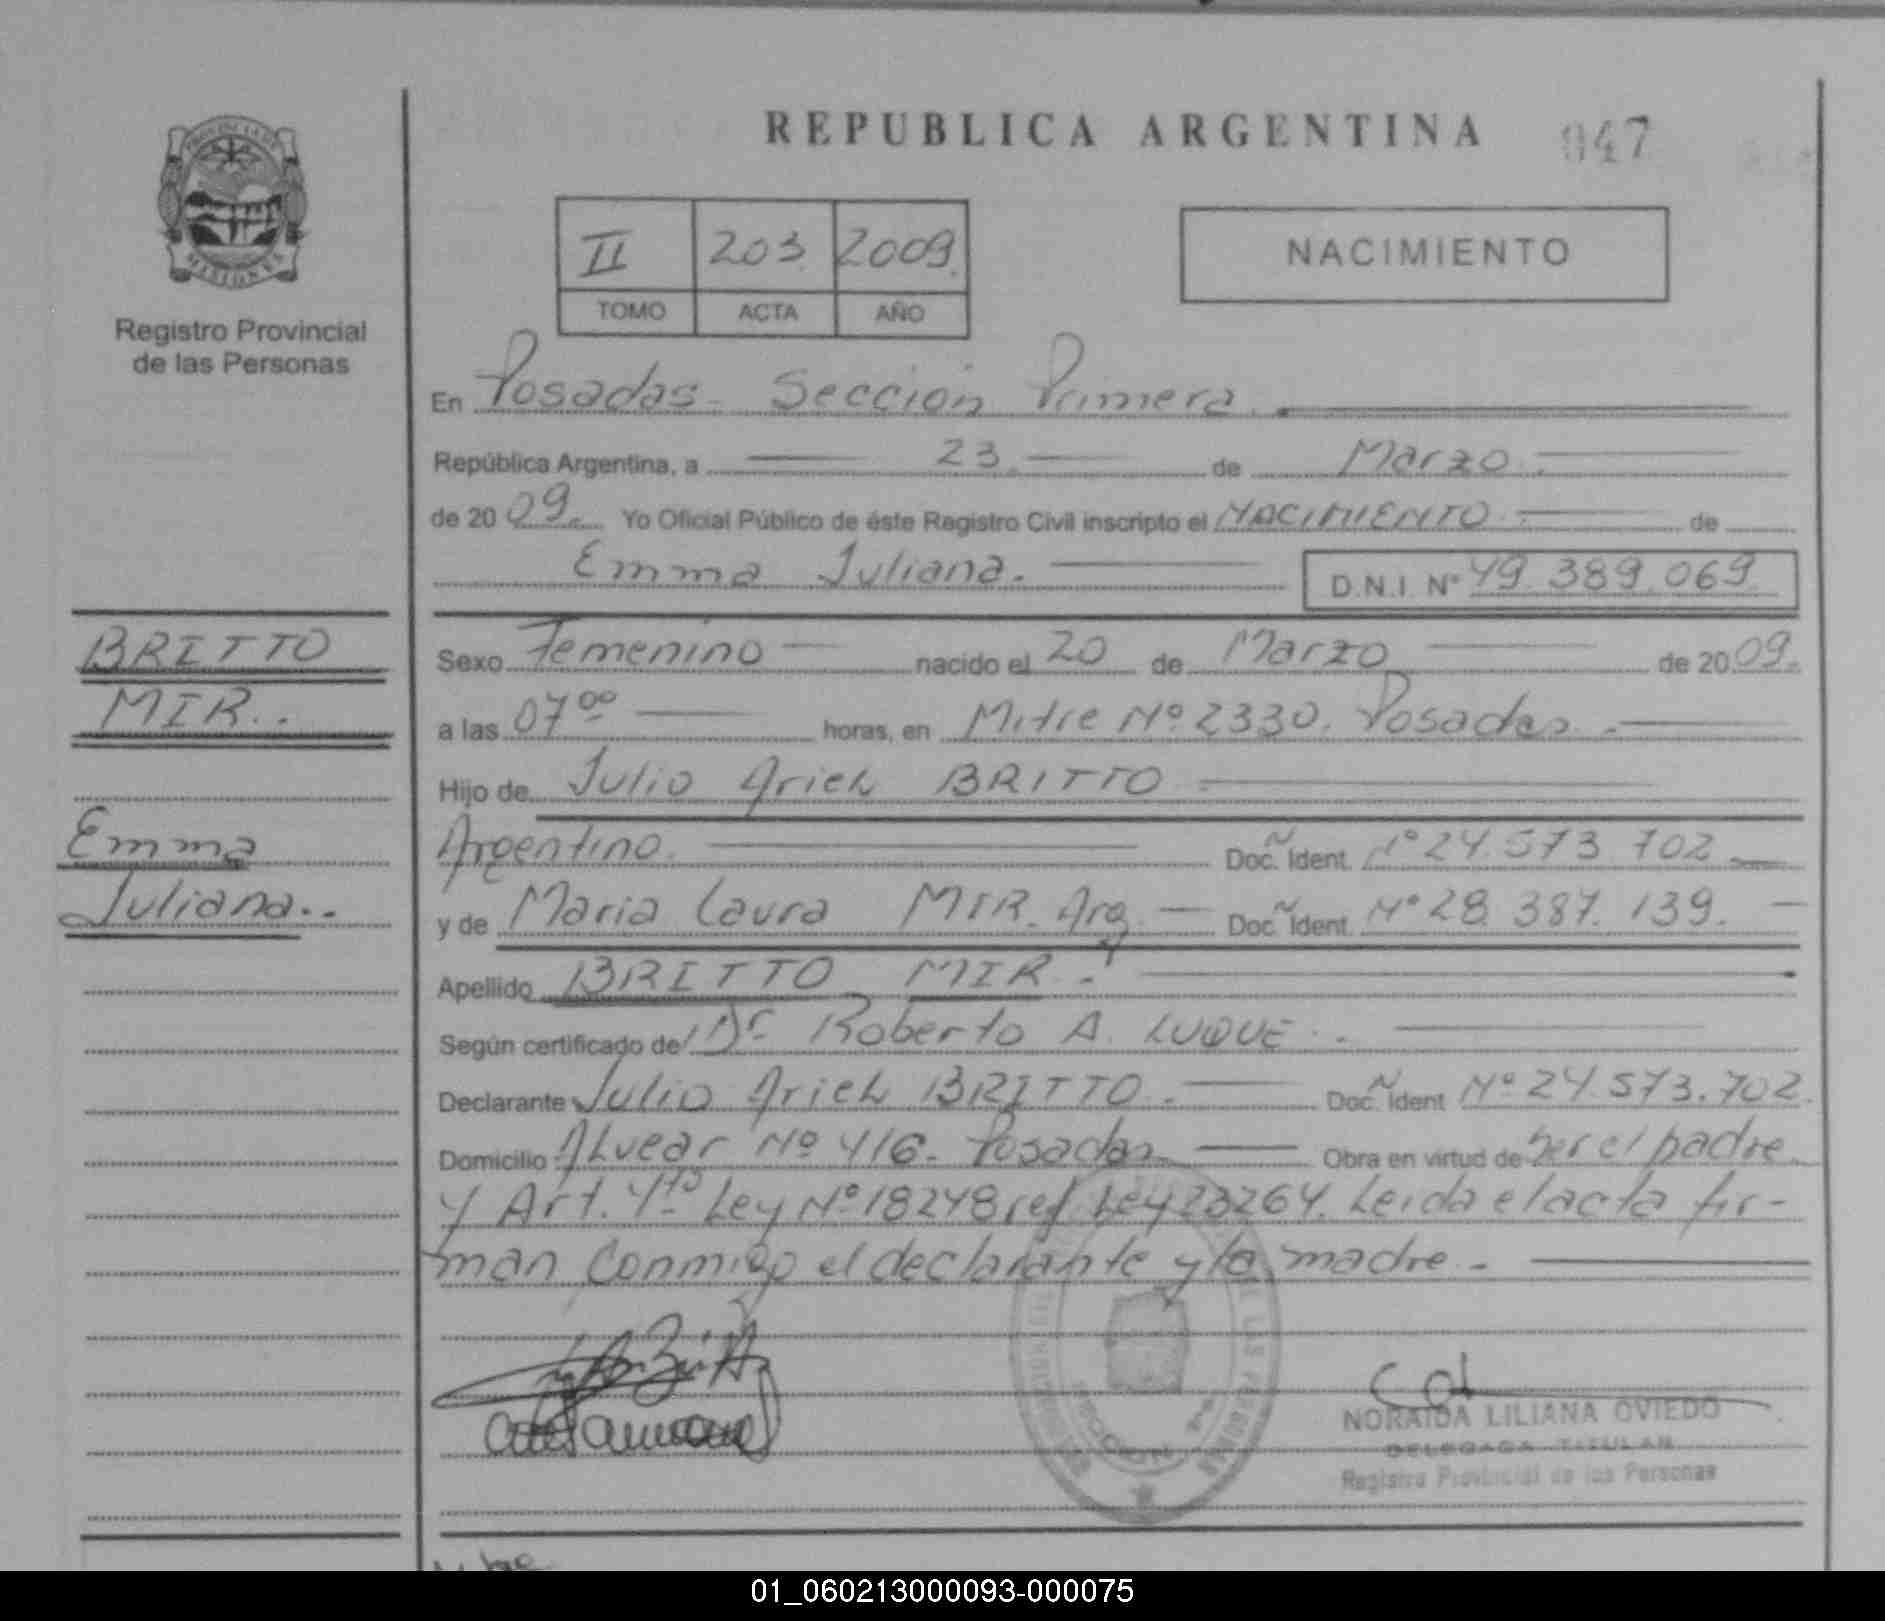 REPUBLICA ARGENTINA 047
PROVINCIA DE
MISIONES
Registro Provincial
de las Personas
II 203. 2009.
TOMO ACTA AÑO
NACIMIENTO
En Posadas - Sección Primera.
República Argentina, a 23. de Marzo.
de 20 09. Yo Oficial Público de éste Registro Civil inscripto el NACIMIENTO. de
Emma Juliana.
D.N.I. Nº 49.389.069.
BRITTO
MIR..
Emma
Juliana..
Sexo Femenino nacido el 20 de Marzo de 20 09.
a las 07ºº horas, en Mitre Nº 2330. Posadas.
Hijo de Julio Ariel BRITTO
Argentino. Doc. Ident. Nº 24.573.702
y de Maria Laura MIR. Arg. Doc. Ident. Nº 28.387.139.
Apellido BRITTO MIR.-
Según certificado de Dr Roberto A. LUQUE.
Declarante Julio Ariel BRITTO. Doc. Ident Nº 24.573.702.
Domicilio ALvear Nº 416. Posadas Obra en virtud de Ser el padre.
y Art. 4to Ley Nº 18248 ref Ley 23264. Leida el acta fir-
man conmigo el declarante y la madre.-
NORAIDA LILIANA OVIEDO
DELEGADA TITULAR
Registro Provincial de las Personas
01_060213000093-000075